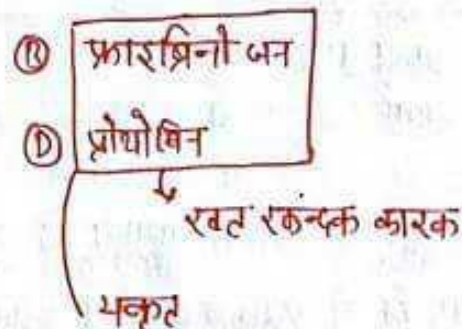 Ⓑ फ्राइब्रिनोजन
Ⓓ प्रोथोम्बिन
रक्त स्कंन्दक कारक
यकृत